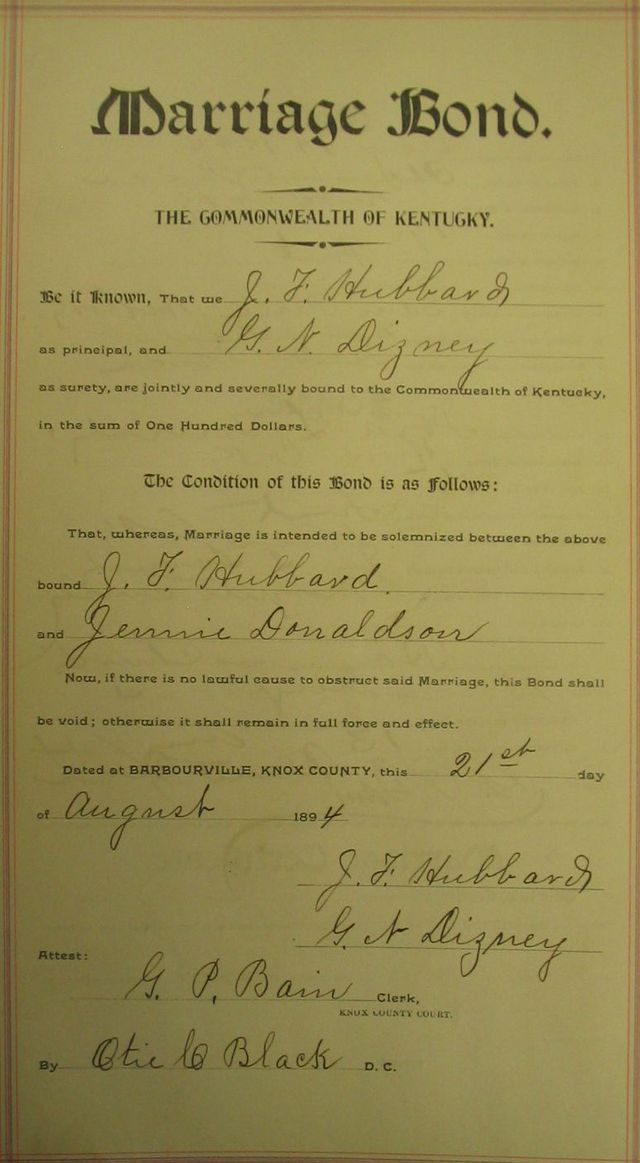 Marriage Bond.
THE COMMONWEALTH OF KENTUCKY.
Be it Known, That we J. F. Hubbard
as principal, and G. N. Dizney
as surety, are jointly and severally bound to the Commonwealth of Kentucky,
in the sum of One Hundred Dollars.
The Condition of this Bond is as Follows:
That, whereas, Marriage is intended to be solemnized between the above
bound J. F. Hubbard
and Jennie Donaldson
Now, if there is no lawful cause to obstruct said Marriage, this Bond shall
be void; otherwise it shall remain in full force and effect.
Dated at BARBOURVILLE, KNOX COUNTY, this 21st day
of August 1894
J. F. Hubbard
G. N Dizney
Attest:
G. P. Bain Clerk,
KNOX COUNTY COURT.
By Otie C Black D. C.